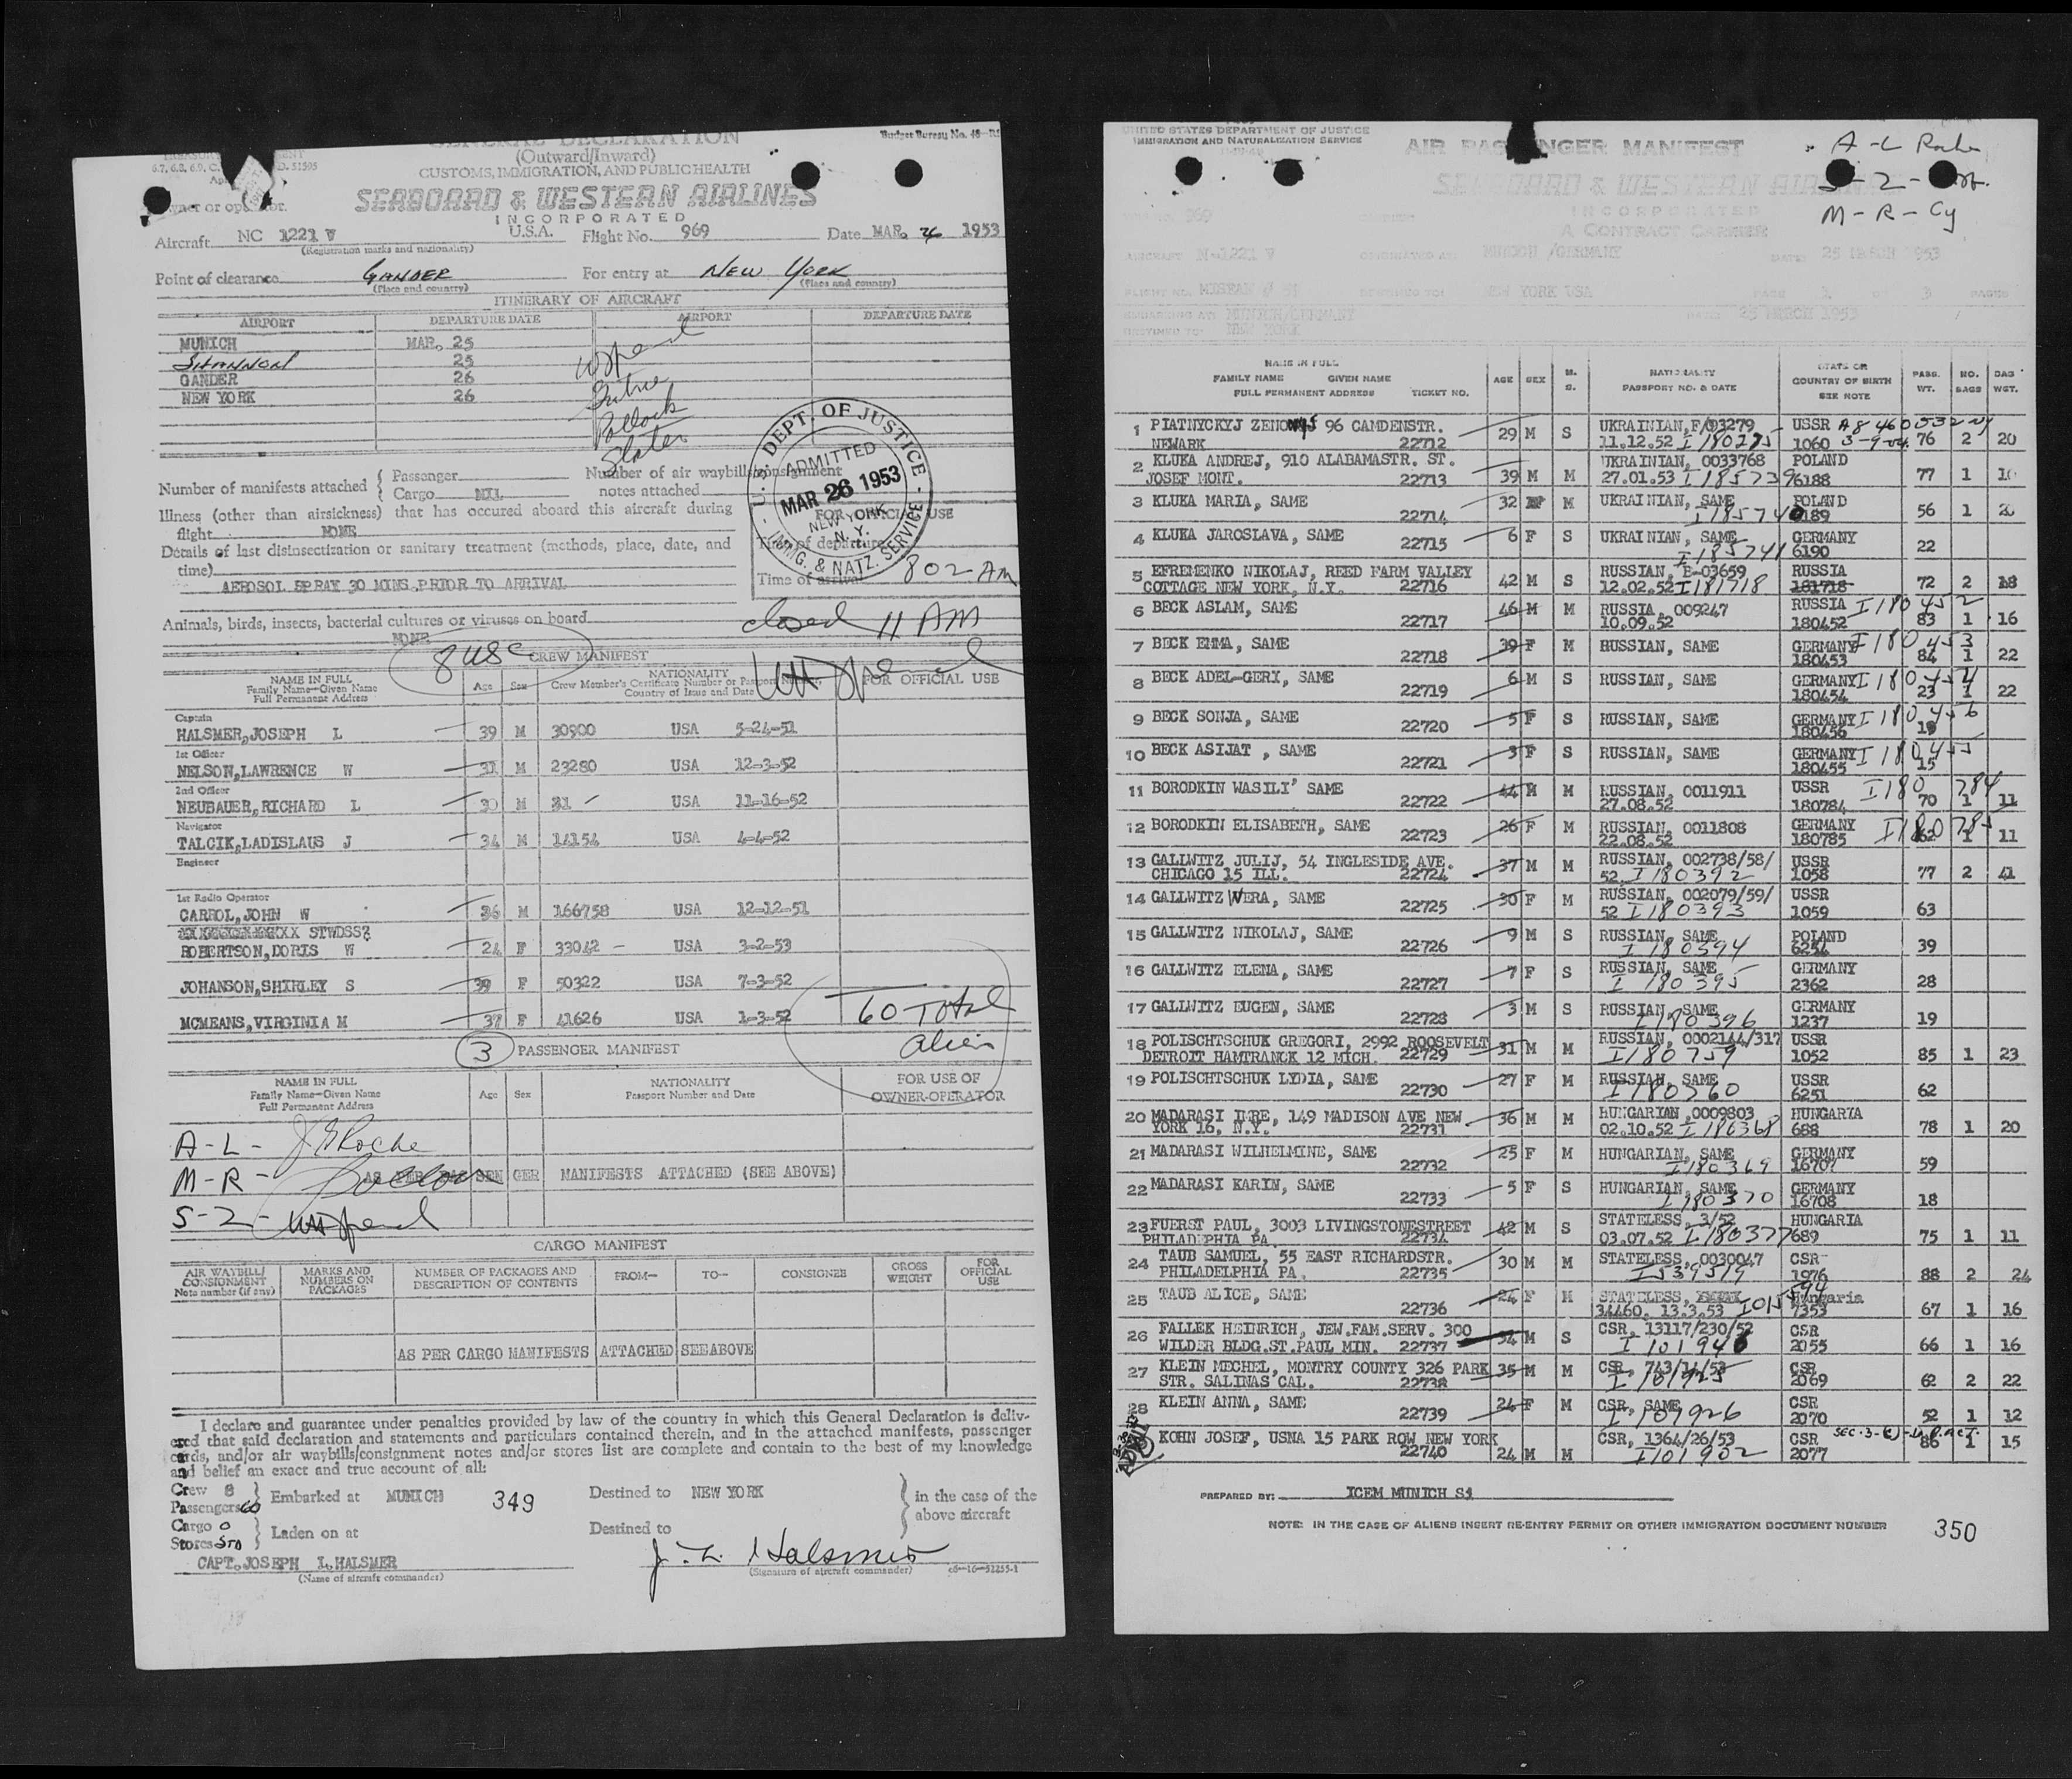 GENERAL DECLARATION
Budget Bureau No. 48-R
(Outward/Inward)
CUSTOMS, IMMIGRATION, AND PUBLIC HEALTH
SEABOARD & WESTERN AIRLINES
INCORPORATED
Aircraft NC 1221 V U.S.A. Flight No. 969 Date MAR. 26 1953
(Registration marks and nationality)
Point of clearance GANDER For entry at NEW YORK
(Place and country) (Place and country)
ITINERARY OF AIRCRAFT
AIRPORT DEPARTURE DATE AIRPORT DEPARTURE DATE
MUNICH MAR. 25
SHANNON 25
GANDER 26
NEW YORK 26
Pollock
Slater
U.S. DEPT. OF JUSTICE
ADMITTED
MAR 26 1953
NEW YORK
N.Y.
IMMG. & NATZ. SERVICE
Number of manifests attached
Passenger
Cargo NIL
Number of air waybills/consignment
notes attached
Illness (other than airsickness) that has occured aboard this aircraft during
flight NONE
FOR OFFICIAL USE
Details of last disinsectization or sanitary treatment (methods, place, date, and
time)
AEROSOL SPRAY 30 MINS PRIOR TO ARRIVAL
Time of departure
Time of arrival 802 AM
Animals, birds, insects, bacterial cultures or viruses on board
NONE
closed 11 AM
8 USC
CREW MANIFEST
NAME IN FULL
Family Name—Given Name
Full Permanent Address
Age Sex
NATIONALITY
Crew Member's Certificate Number or Passport Number,
Country of Issue and Date
FOR OFFICIAL USE
Captain
HALSMER,JOSEPH L 39 M 30900 USA 5-24-51
1st Officer
NELSON,LAWRENCE W 31 M 23280 USA 12-3-52
2nd Officer
NEUBAUER,RICHARD L 30 M 31 USA 11-16-52
Navigator
TALCIK,LADISLAUS J 34 M 14154 USA 4-4-52
Engineer
1st Radio Operator
CARROL,JOHN W 36 M 166758 USA 12-12-51
STWDSS
ROBERTSON,DORIS W 24 F 33042 USA 3-2-53
JOHANSON,SHIRLEY S 39 F 50322 USA 7-3-52
MCMEANS,VIRGINIA M 37 F 41626 USA 1-3-52
60 Total
alien
3 PASSENGER MANIFEST
NAME IN FULL
Family Name—Given Name
Full Permanent Address
Age Sex
NATIONALITY
Passport Number and Date
FOR USE OF
OWNER-OPERATOR
A-L- J Roche
M-R-
AS PER PASSENGER MANIFESTS ATTACHED (SEE ABOVE)
S-2-
CARGO MANIFEST
AIR WAYBILL/
CONSIGNMENT
Note number (if any)
MARKS AND
NUMBERS ON
PACKAGES
NUMBER OF PACKAGES AND
DESCRIPTION OF CONTENTS
FROM— TO— CONSIGNEE
GROSS
WEIGHT
FOR
OFFICIAL
USE
AS PER CARGO MANIFESTS ATTACHED SEE ABOVE
I declare and guarantee under penalties provided by law of the country in which this General Declaration is deliv-
ered that said declaration and statements and particulars contained therein, and in the attached manifests, passenger
cards, and/or air waybills/consignment notes and/or stores list are complete and contain to the best of my knowledge
and belief an exact and true account of all:
Crew 8
Passengers 60
Embarked at MUNICH 349 Destined to NEW YORK
in the case of the
above aircraft
Cargo 0
Stores
Laden on at Destined to
CAPT. JOSEPH L. HALSMER
(Name of aircraft commander)
J. L. Halsmer
(Signature of aircraft commander)
UNITED STATES DEPARTMENT OF JUSTICE
IMMIGRATION AND NATURALIZATION SERVICE
AIR PASSENGER MANIFEST
A-L Roche
S-2-
M-R-Cy
SEABOARD & WESTERN AIRLINES
INCORPORATED
A CONTRACT CARRIER
969
AIRCRAFT N-1221 V ORIGINATED AT: MUNICH /GERMANY DATE: 25 MARCH 1953
FLIGHT NO. DESTINED TO: NEW YORK USA PAGE 1 OF 3 PAGES
EMBARKING AT: MUNICH/GERMANY DATE: 25 MARCH 1953
DESTINED TO: NEW YORK
NAME IN FULL
FAMILY NAME GIVEN NAME
FULL PERMANENT ADDRESS TICKET NO.
AGE SEX M. S.
NATIONALITY
PASSPORT NO. & DATE
STATE OR
COUNTRY OF BIRTH
SEE NOTE
PASS. WT.
NO. BAGS
BAG WGT.
1 PIATNYCKYJ ZENO 96 CAMDENSTR. 29 M S UKRAINIAN, USSR
NEWARK 22712 11.12.52 1060 76 2 20
2 KLUKA ANDREJ, 910 ALABAMASTR. ST. UKRAINIAN, 0033768 POLAND
JOSEF MONT. 22713 39 M M 27.01.53 I185739 6188 77 1
3 KLUKA MARIA, SAME 22714 32 M UKRAINIAN, SAME POLAND
I185740 6189 56 1
4 KLUKA JAROSLAVA, SAME 22715 6 F S UKRAINIAN, SAME GERMANY
I185741 6190 22
5 EFREMENKO NIKOLAJ, REED FARM VALLEY RUSSIAN, E-03659 RUSSIA
COTTAGE NEW YORK, N.Y. 22716 42 M S 12.02.52 I181718 181718 72 2 18
6 BECK ASLAM, SAME 22717 46 M M RUSSIA, 009247 RUSSIA I180452
10.09.52 180452 83 1 16
7 BECK EMMA, SAME 22718 39 F M RUSSIAN, SAME GERMANY I180453
180453 84 1 22
8 BECK ADEL-GERY, SAME 22719 6 M S RUSSIAN, SAME GERMANY I180454
180454 23 1 22
9 BECK SONJA, SAME 22720 5 F S RUSSIAN, SAME GERMANY I180456
180456 19
10 BECK ASIJAT , SAME 22721 3 F S RUSSIAN, SAME GERMANY I180455
180455 15
11 BORODKIN WASILI' SAME 22722 44 M M RUSSIAN, 0011911 USSR I180784
27.08.52 180784 70 1 11
12 BORODKIN ELISABETH, SAME 22723 26 F M RUSSIAN, 0011808 GERMANY I180785
22.08.52 180785 62 1 11
13 GALLWITZ JULIJ, 54 INGLESIDE AVE. 37 M M RUSSIAN, 002738/58/ USSR
CHICAGO 15 ILL. 22724 52 I180392 1058 77 2 41
14 GALLWITZ WERA, SAME 22725 30 F M RUSSIAN, 002079/59/ USSR
52 I180393 1059 63
15 GALLWITZ NIKOLAJ, SAME 22726 9 M S RUSSIAN, SAME POLAND
I180394 6254 39
16 GALLWITZ ELENA, SAME 22727 7 F S RUSSIAN, SAME GERMANY
I180395 2362 28
17 GALLWITZ EUGEN, SAME 22728 3 M S RUSSIAN, SAME GERMANY
I180396 1237 19
18 POLISCHTSCHUK GREGORI, 2992 ROOSEVELT 31 M M RUSSIAN, 0002144/317 USSR
DETROIT HAMTRANCK 12 MICH. 22729 I180759 1052 85 1 23
19 POLISCHTSCHUK LYDIA, SAME 22730 27 F M RUSSIAN, SAME USSR
I180760 6251 62
20 MADARASI IMRE, 149 MADISON AVE NEW 36 M M HUNGARIAN ,0009803 HUNGARIA
YORK 16, N.Y. 22731 02.10.52 I180368 688 78 1 20
21 MADARASI WILHELMINE, SAME 22732 25 F M HUNGARIAN, SAME GERMANY
I180369 16707 59
22 MADARASI KARIN, SAME 22733 5 F S HUNGARIAN, SAME GERMANY
I180370 16708 18
23 FUERST PAUL, 3003 LIVINGSTONESTREET 42 M S STATELESS, 3/52 HUNGARIA
PHILADELPHIA PA. 22734 03.07.52 I180377 689 75 1 11
24 TAUB SAMUEL, 55 EAST RICHARDSTR. 30 M M STATELESS, 0030047 CSR
PHILADELPHIA PA. 22735 1976 88 2 24
25 TAUB ALICE, SAME 22736 24 F M STATELESS, Hungaria
34460. 13.3.53 7353 67 1 16
26 FALLEK HEINRICH, JEW.FAM.SERV. 300 54 M S CSR, 13117/230/52 CSR
WILDER BLDG.ST.PAUL MIN. 22737 2055 66 1 16
27 KLEIN MECHEL, MONTRY COUNTY 326 PARK 35 M M CSR, 743/14/53 CSR
STR. SALINAS CAL. 22738 I101925 2069 62 2 22
28 KLEIN ANNA, SAME 22739 24 F M CSR, SAME CSR
I101926 2070 52 1 12
KOHN JOSEF, USNA 15 PARK ROW NEW YORK CSR, 1364/26/53 CSR
22740 24 M M I101902 2077 86 1 15
PREPARED BY: ICEM MUNICH
NOTE: IN THE CASE OF ALIENS INSERT RE-ENTRY PERMIT OR OTHER IMMIGRATION DOCUMENT NUMBER
350